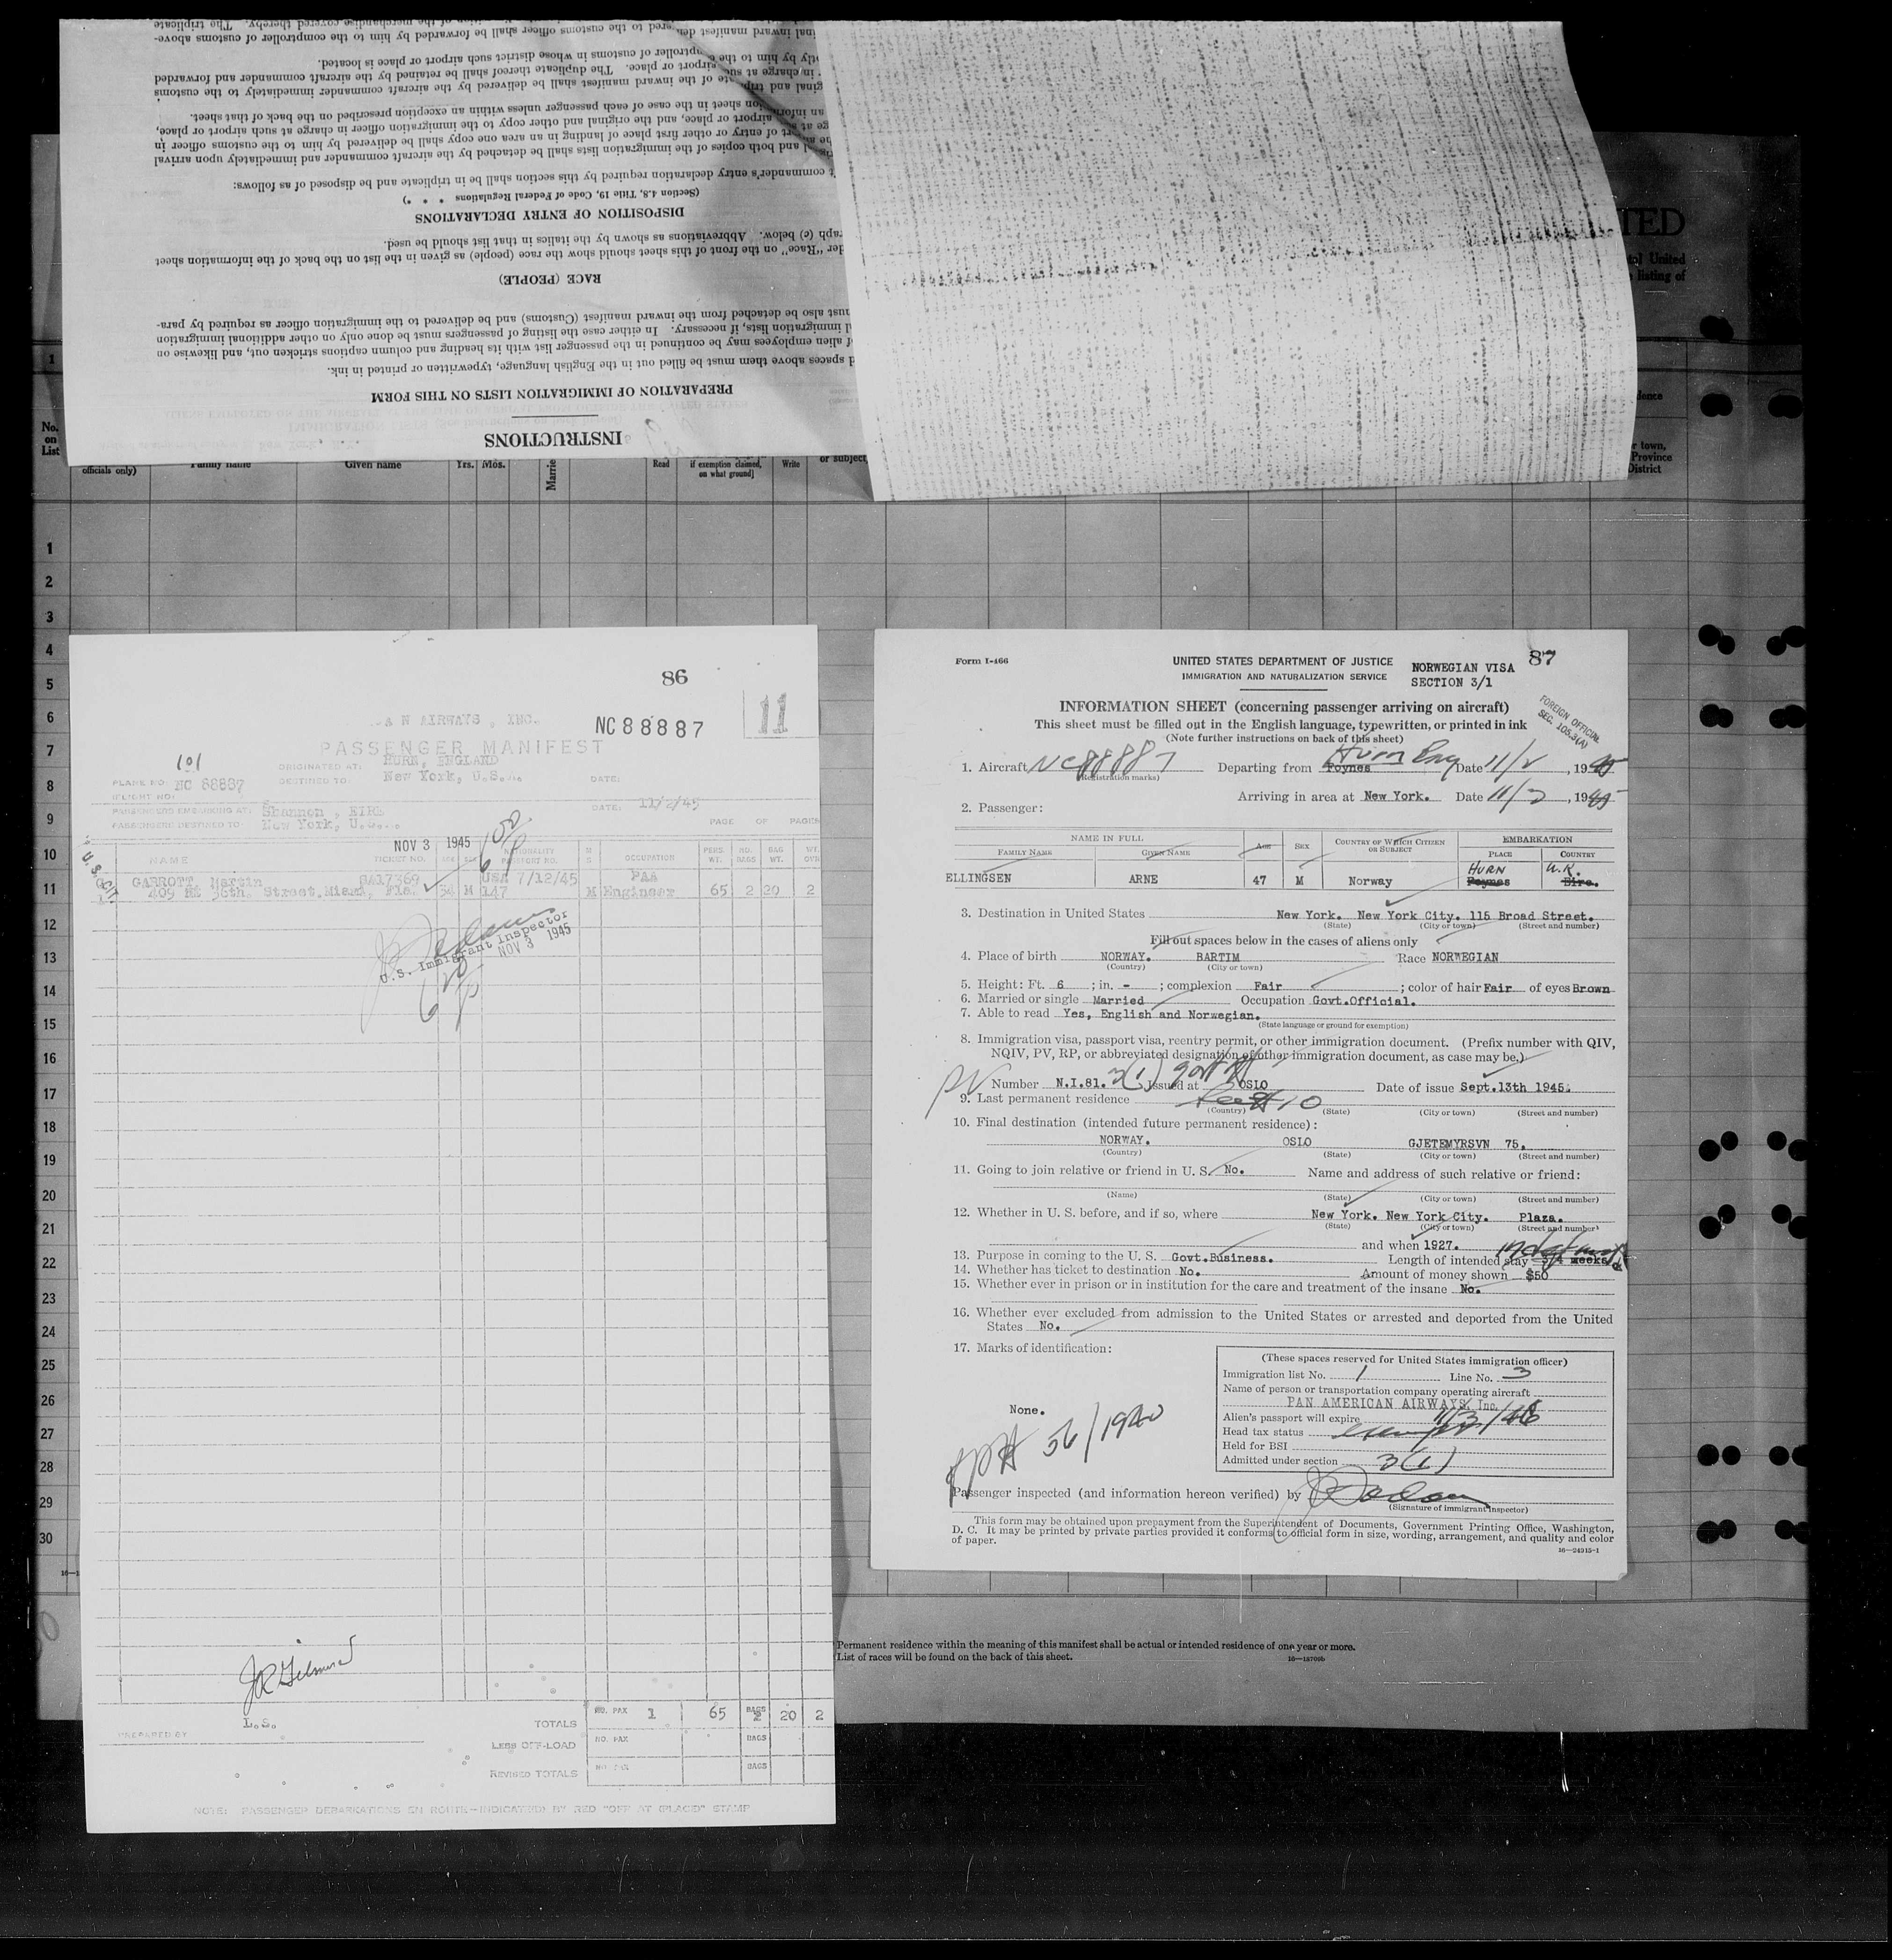 INSTRUCTIONS
PREPARATION OF IMMIGRATION LISTS ON THIS FORM
d spaces above them must be filled out in the English language, typewritten or printed in ink.
f alien employees may be continued in the passenger list with its heading and column captions stricken out, and likewise on
d immigration lists, if necessary. In either case the listing of passengers must be done only on other additional immigration
ust also be detached from the inward manifest (Customs) and be delivered to the immigration officer as required by para-
RACE (PEOPLE)
der "Race" on the front of this sheet should show the race (people) as given in the list on the back of the information sheet
raph (c) below. Abbreviations as shown by the italics in that list should be used.
DISPOSITION OF ENTRY DECLARATIONS
(Section 4.8, Title 19, Code of Federal Regulations * * *)
t commander's entry declaration required by this section shall be in triplicate and be disposed of as follows:
and both copies of the immigration lists shall be detached by the aircraft commander and immediately upon arrival
of entry or other first place of landing in an area one copy shall be delivered by him to the customs officer in
ge at airport or place, and the original and other copy to the immigration officer in charge at such airport or place,
an information sheet in the case of each passenger unless within an exception prescribed on the back of that sheet.
ginal and of the inward manifest shall be delivered by the aircraft commander immediately to the customs
in charge at such airport or place. The duplicate thereof shall be retained by the aircraft commander and forwarded
tly by him to the comptroller of customs in whose district such airport or place is located.
inal inward manifest delivered to the customs officer shall be forwarded by him to the comptroller of customs above-
of the merchandise covered thereby. The triplicate
TED
United
listing of
1
dence
No.
on
List
officials only)
Family name
Given name
Yrs.
Mos.
Marrie
Read
if exemption claimed,
on what ground]
Write
or subject,
r town,
Province
District
1
2
3
4
5
6
7
8
9
10
11
12
13
14
15
16
17
18
19
20
21
22
23
24
25
26
27
28
29
30
86
A N AIRWAYS, INC.
NC88887
11
PASSENGER MANIFEST
101
ORIGINATED AT: HURN, ENGLAND
PLANE NO. NC 88887 DESTINED TO: New York, U.S.A. DATE:
FLIGHT NO.
PASSENGERS EMBARKING AT: Shannon, EIRE DATE: 11/2/45
PASSENGERS DESTINED TO New York, U.S.A.
PAGE OF PAGES
NOV 3 1945
NAME TICKET NO. AGE SEX NATIONALITY PASSPORT NO. M S OCCUPATION PERS. WT. NO. BAGS BAG WT. WT. OVR
U.S. CIT
GARROTT, Martin GA17369 USA 7/12/45 PAA
409 NE 36th. Street, Miami, Fla. 34 M 147 M Engineer 65 2 20 2
U.S. Immigrant Inspector
NOV 3 1945
JR Gilmore
PREPARED BY L.S.
TOTALS NO. PAX 1 65 BAGS 2 20 2
LESS OFF-LOAD NO. PAX BAGS
REVISED TOTALS NO. PAX BAGS
NOTE: PASSENGER DEBARKATIONS EN ROUTE—INDICATED BY RED "OFF AT (PLACE)" STAMP
Form I-466
UNITED STATES DEPARTMENT OF JUSTICE
IMMIGRATION AND NATURALIZATION SERVICE
NORWEGIAN VISA
SECTION 3/1
87
FOREIGN OFFICIAL
SEC. 105.3(A)
INFORMATION SHEET (concerning passenger arriving on aircraft)
This sheet must be filled out in the English language, typewritten, or printed in ink
(Note further instructions on back of this sheet)
1. Aircraft NC88887 Departing from Foynes Hurn Eng Date 11/2, 1945
(Registration marks)
Arriving in area at New York. Date 11/3, 1945
2. Passenger:
NAME IN FULL
FAMILY NAME
GIVEN NAME
AGE
SEX
COUNTRY OF WHICH CITIZEN OR SUBJECT
EMBARKATION
PLACE
COUNTRY
HURN U.K.
ELLINGSEN ARNE 47 M Norway Foynes Eire.
3. Destination in United States New York. New York City. 115 Broad Street.
(State) (City or town) (Street and number)
Fill out spaces below in the cases of aliens only
4. Place of birth NORWAY. BARTIM Race NORWEGIAN
(Country) (City or town)
5. Height: Ft. 6 ; in. - ; complexion Fair ; color of hair Fair of eyes Brown
6. Married or single Married Occupation Govt.Official.
7. Able to read Yes, English and Norwegian.
(State language or ground for exemption)
8. Immigration visa, passport visa, reentry permit, or other immigration document. (Prefix number with QIV,
NQIV, PV, RP, or abbreviated designation of other immigration document, as case may be.)
PV Number N.I.81. 3(1) Issued at OSLO Date of issue Sept.13th 1945.
9. Last permanent residence
(Country) (State) (City or town) (Street and number)
10. Final destination (intended future permanent residence):
NORWAY. OSLO GJETEMYRSVN 75.
(Country) (State) (City or town) (Street and number)
11. Going to join relative or friend in U. S. No. Name and address of such relative or friend:
(Name) (State) (City or town) (Street and number)
12. Whether in U. S. before, and if so, where New York. New York City. Plaza.
(State) (City or town) (Street and number)
and when 1927.
13. Purpose in coming to the U. S. Govt.Business. Length of intended stay 3/4 weeks
14. Whether has ticket to destination No. Amount of money shown $50
15. Whether ever in prison or in institution for the care and treatment of the insane No.
16. Whether ever excluded from admission to the United States or arrested and deported from the United
States No.
17. Marks of identification:
None.
56/1940
(These spaces reserved for United States immigration officer)
Immigration list No. 1 Line No. 3
Name of person or transportation company operating aircraft
PAN AMERICAN AIRWAYS, Inc.
Alien's passport will expire 11/3/46
Head tax status exempt
Held for BSI
Admitted under section 3(1)
Passenger inspected (and information hereon verified) by
(Signature of immigrant inspector)
This form may be obtained upon prepayment from the Superintendent of Documents, Government Printing Office, Washington,
D. C. It may be printed by private parties provided it conforms to official form in size, wording, arrangement, and quality and color
of paper.
16—24915-1
Permanent residence within the meaning of this manifest shall be actual or intended residence of one year or more.
List of races will be found on the back of this sheet.